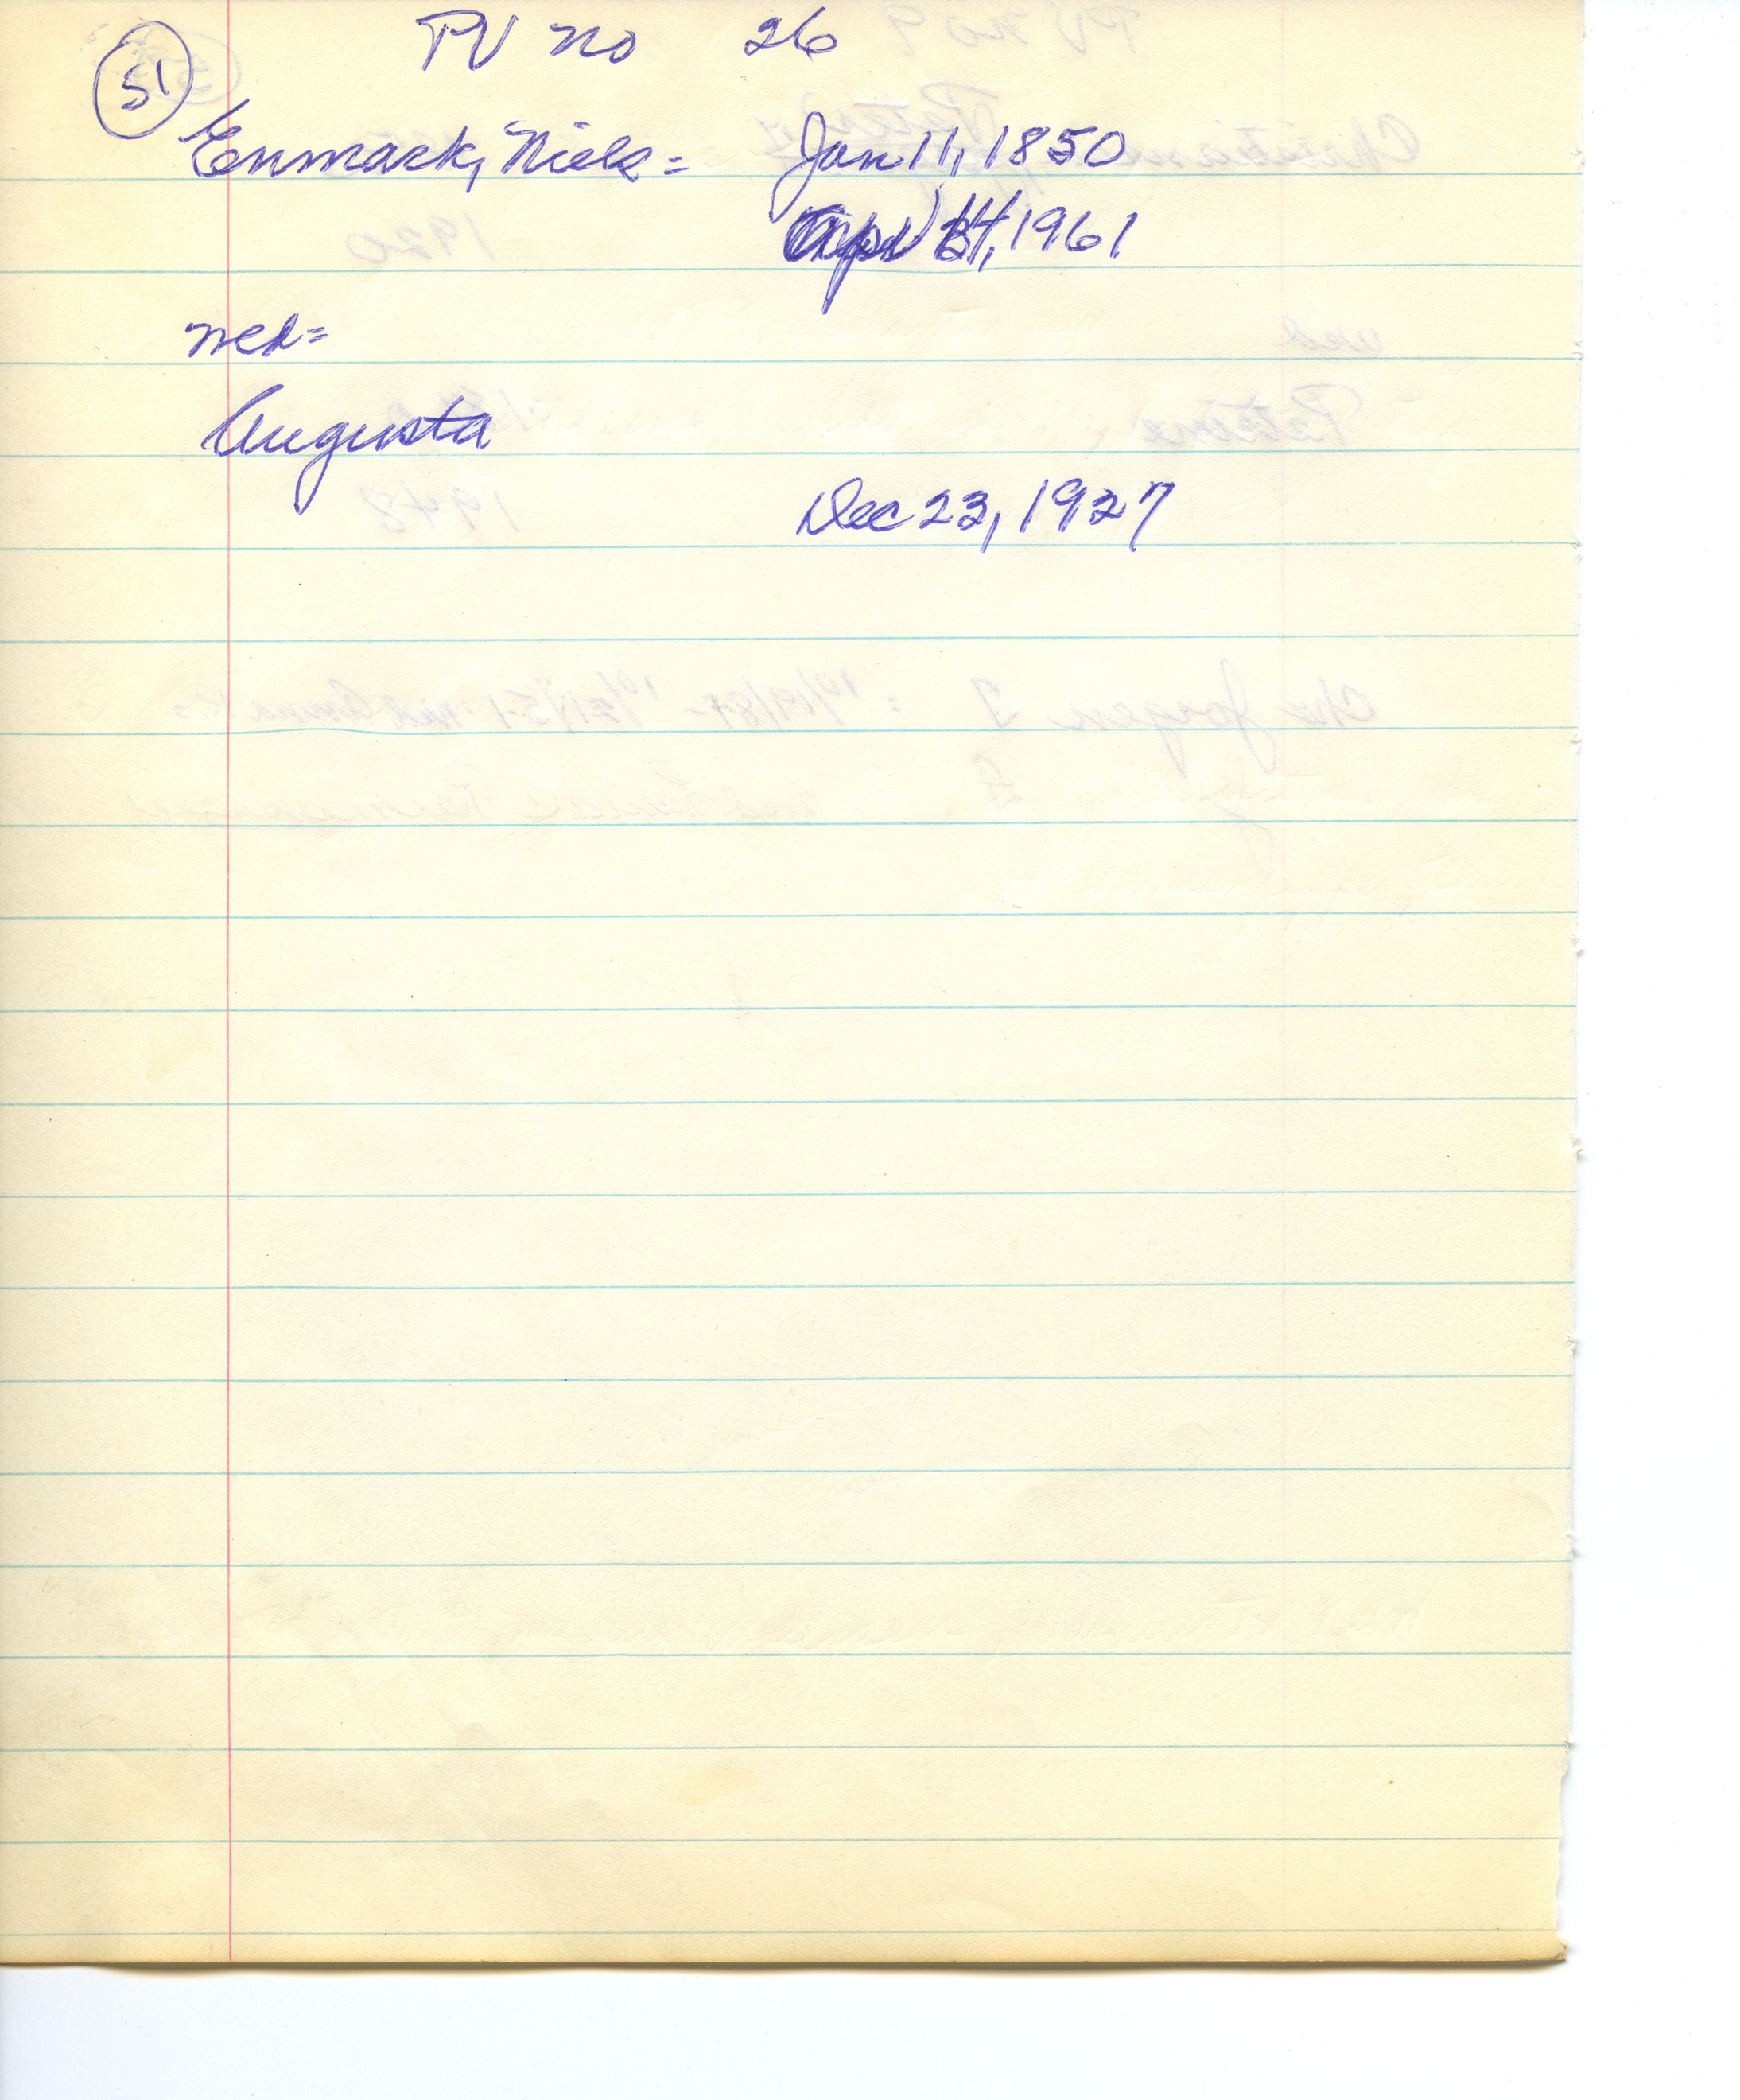 51
PV no 26
Enmark, Niels = Jan 11, 1850
Apr 1961
wed=
Augusta
Dec 23, 1927